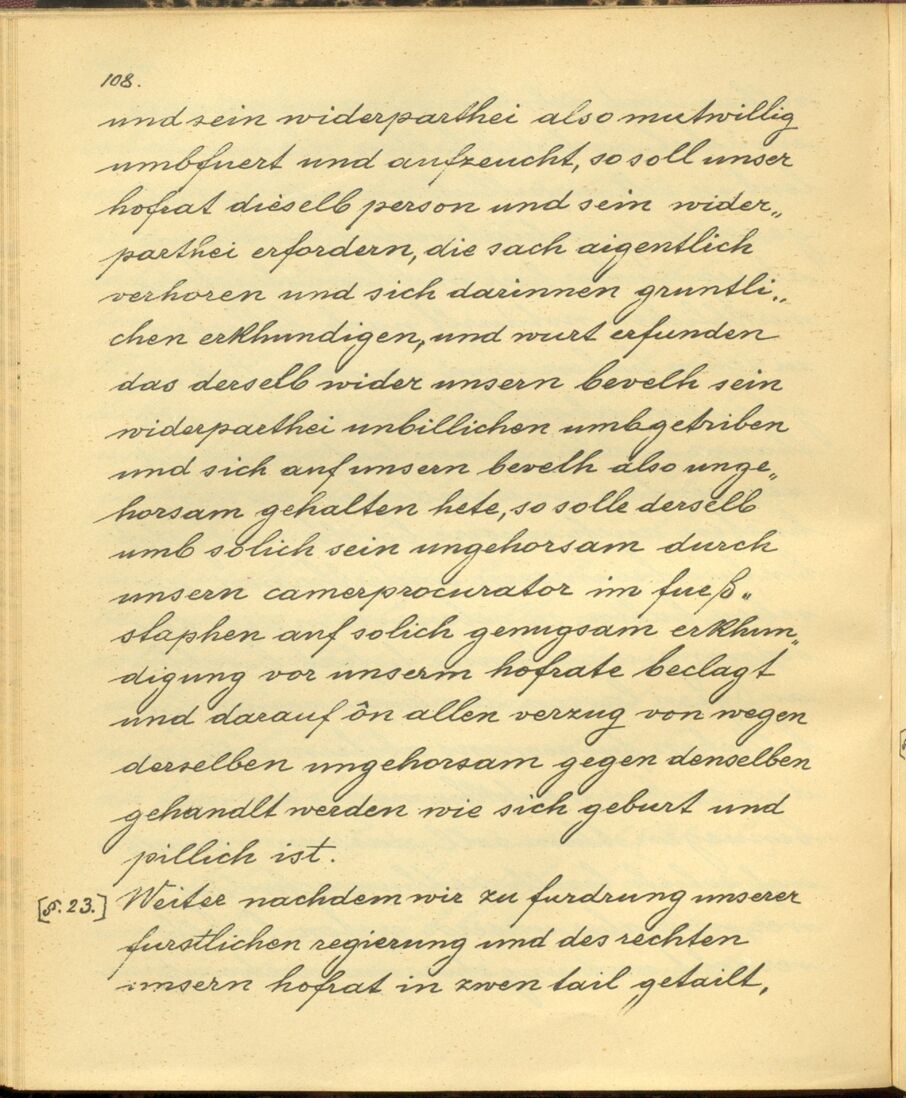 108.
und sein widerparthei also mutwillig
umbfuert und aufzeucht, so soll unser
hofrat dieselb person und sein wider„
parthei erfordern, die sach aigentlich
verhoren und sich darinnen gruntli„
chen erkhundigen, und wurt erfunden
das derselb wider unsern bevelh sein
widerparthei unbillichen umbgetriben
und sich auf unsern bevelh also unge„
horsam gehalten hete, so solle derselb
umb solich sein ungehorsam durch
unsern camerprocurator im fueß„
staphen auf solich genugsam erkhun„
digung vor unserm hofrate beclagt
und darauf ôn allen verzug von wegen
derselben ungehorsam gegen denselben
gehandlt werden wie sich geburt und
pillich ist.
[§. 23.] Weiter nachdem wir zu furdrung unserer
furstlichen regierung und des rechten
unsern hofrat in zwen tail getailt,